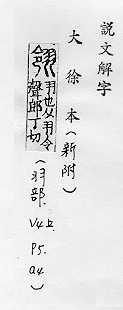 說文解字
大徐本(新附)
翎 羽也从羽令
聲郎丁切
(羽部. V4上. P5. a4)